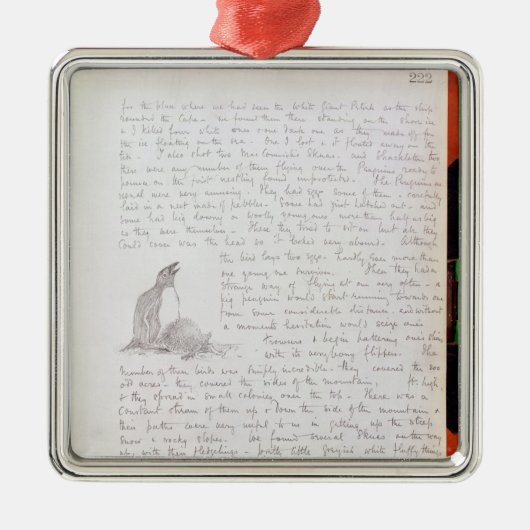 222
for the place where we had seen the White Giant Petrels as the ship
rounded the Cape - we found them there standing on the shore in
& I killed four white ones & one dark one as they made off for
the ice floating on the sea. One I lost as it floated away on the
I also shot two MacCormick's Skuas. and Shackleton two
there were any number of them flying over the Penguins ready to
pounce on the first nestling found unprotected. The Penguins as
usual were very amusing. They had eggs some of them & carefully
laid in a nest made of pebbles. Some had just hatched out - and
some had big downy or woolly young ones more than half as big
as they were themselves. These they tried to sit on but all they
could cover was the head so it looked very absurd. Although
the bird lays two eggs - hardly ever more than
one young one survives. Then they had a
strange way of flying at one very often - a
big penguin would start running towards one
from some considerable distance - and without
a moments hesitation would seize one's
trowsers & begin battering one's shins
with its very bony flippers. The
number of these birds was simply incredible - they covered the 200
odd acres - they covered the sides of the mountain, ft. high,
& they spread in small colonies over the top. There was a
constant stream of them up & down the side of the mountain &
their paths were very useful to us in getting up the steep
snow & rocky slopes. We found several Skuas on the way
up, with their fledgelings - pretty little greyish white fluffy things